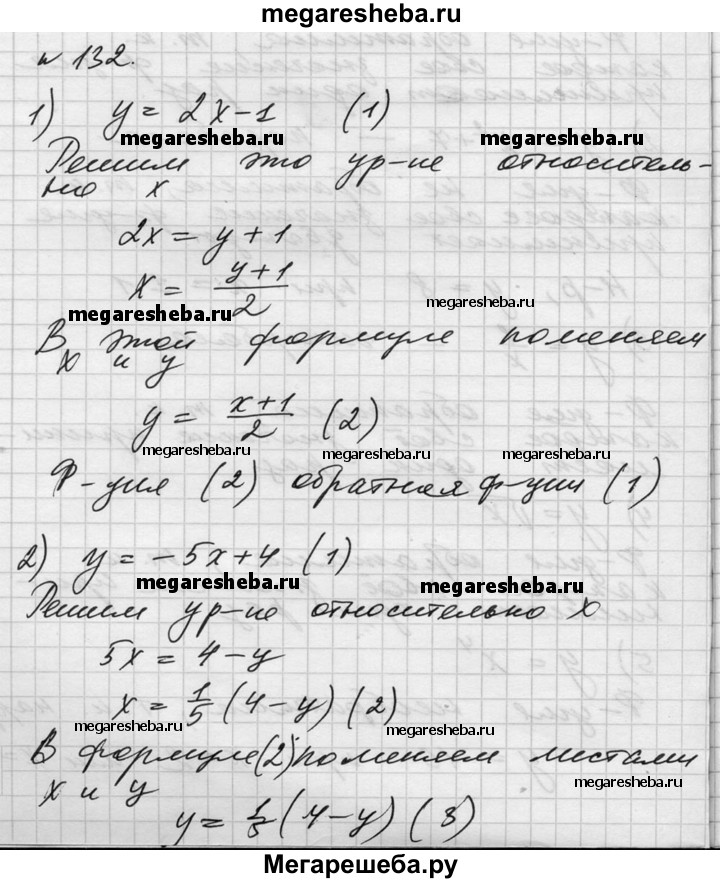 megaresheba.ru
№ 132.
1) y = 2x-1 (1)
megaresheba.ru megaresheba.ru
Решим это ур-ие относитель-
но x
2x = y + 1
x = \frac{y+1}{2}
megaresheba.ru megaresheba.ru
В этой формуле поменяем
x и y
y = \frac{x+1}{2} (2)
megaresheba.ru megaresheba.ru megaresheba.ru
Ф-ция (2) обратная ф-ции (1)
2) y = -5x+4 (1)
megaresheba.ru megaresheba.ru
Решим ур-ие относительно x
5x = 4-y
x = \frac{1}{5} (4-y) (2)
megaresheba.ru megaresheba.ru
В формуле (2) поменяем местами
megaresheba.ru
x и y
y = \frac{1}{5} (4-y) (3)
Мегарешеба.ру